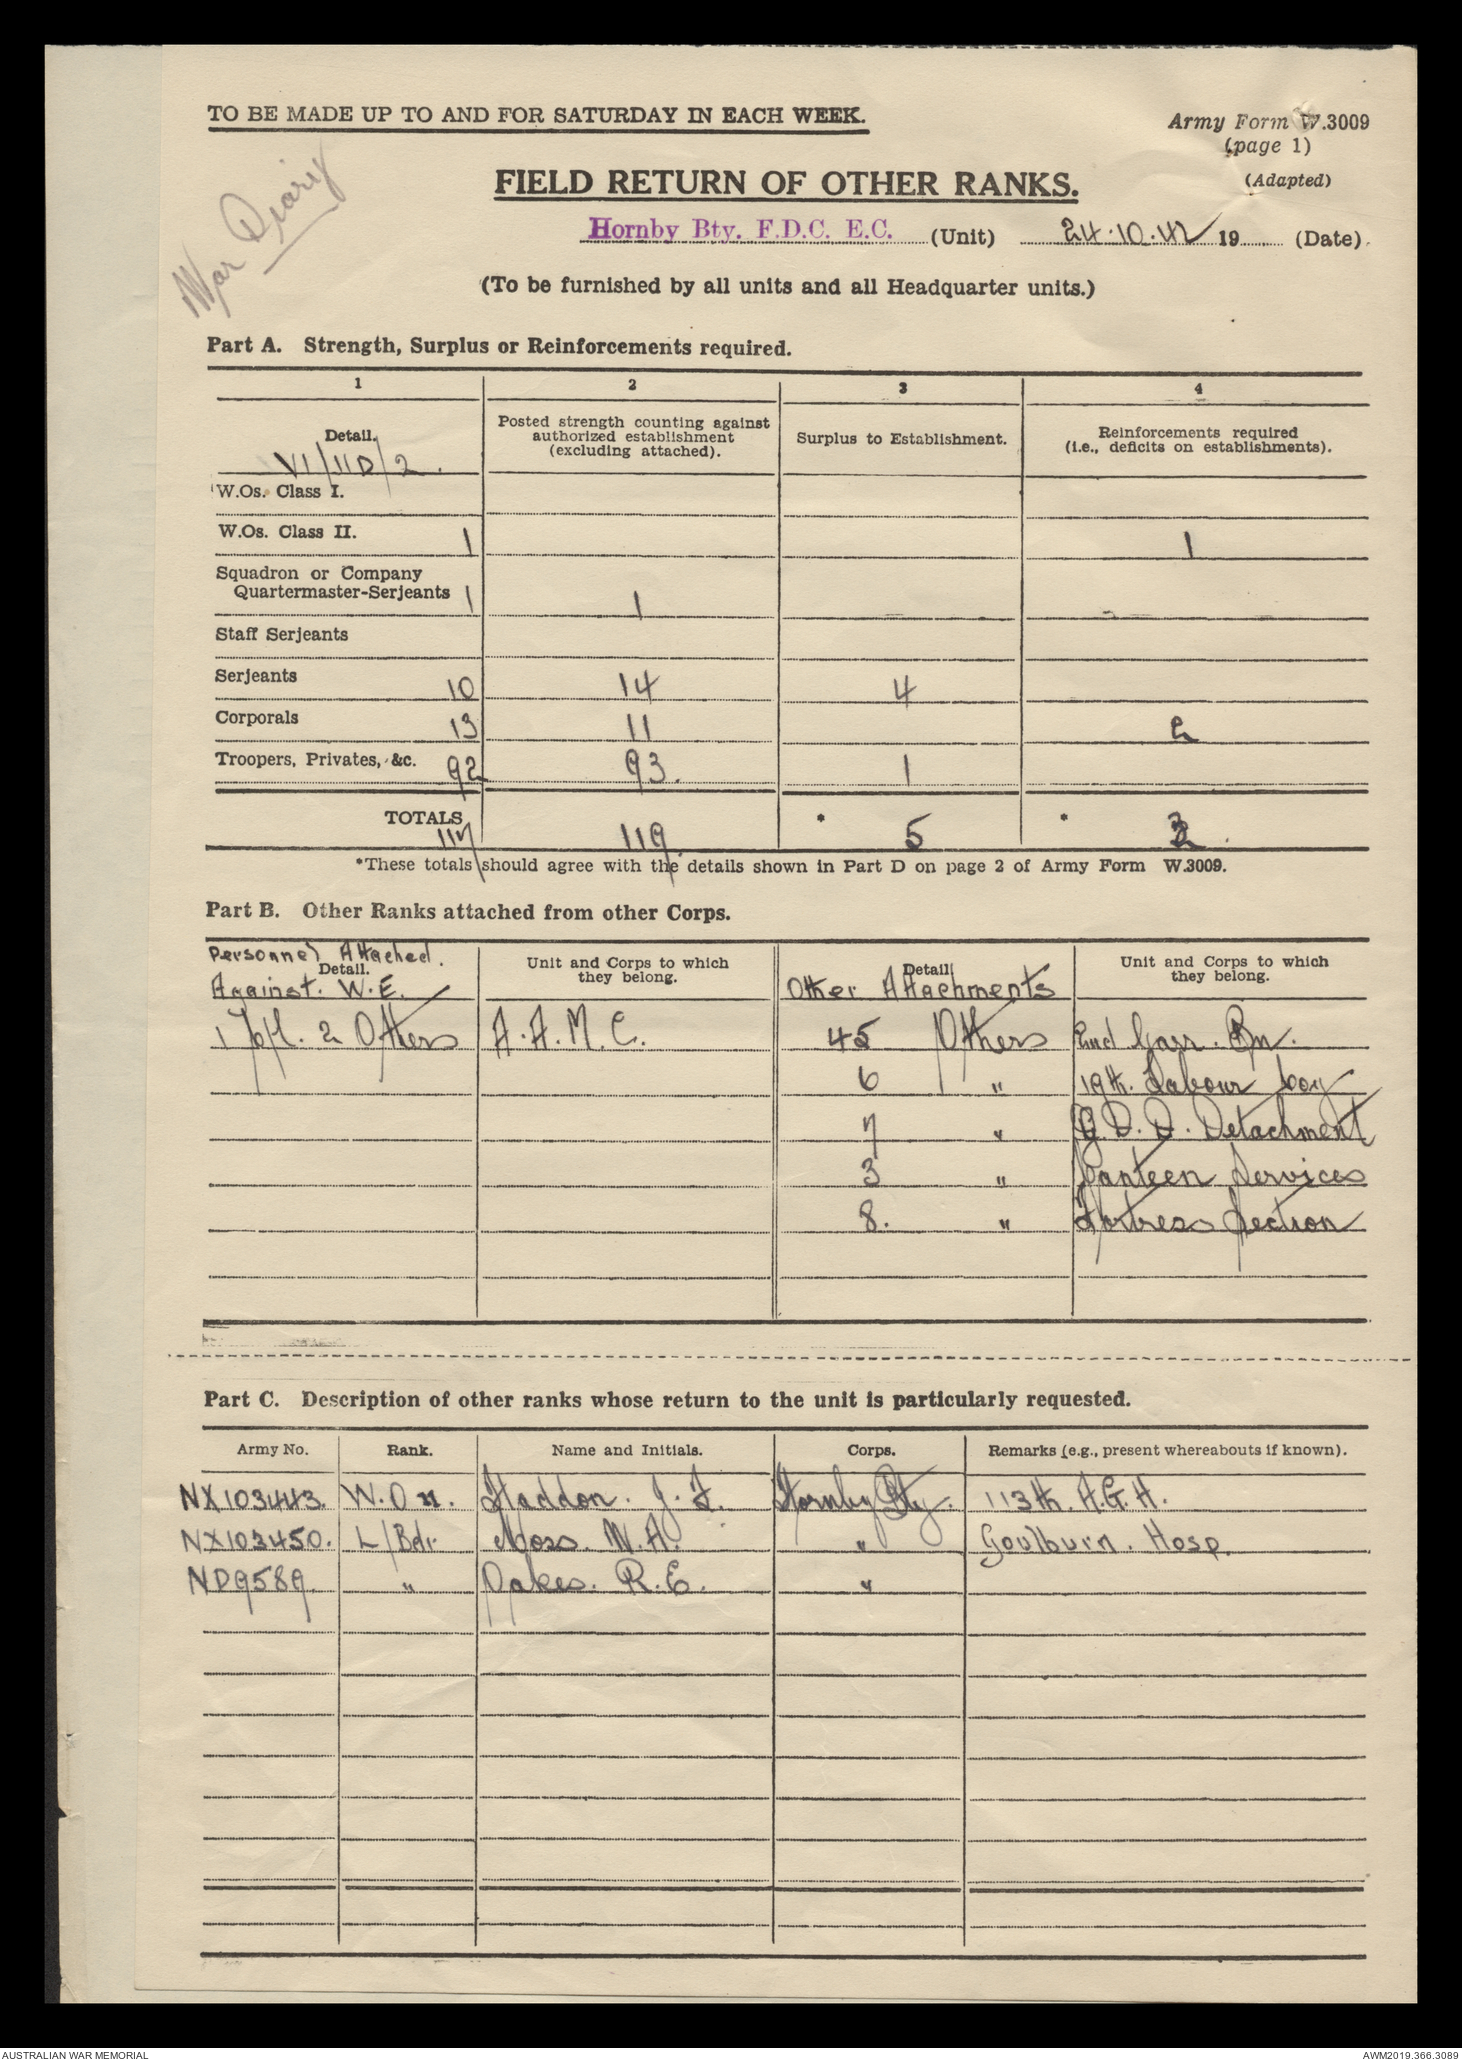 TO BE MADE UP TO AND FOR SATURDAY IN EACH WEEK.
Army Form W.3009
(page 1)
(Adapted)
War Diary
FIELD RETURN OF OTHER RANKS.
Hornby Bty. F.D.C. E.C. (Unit) 24.10.42 19 (Date)
(To be furnished by all units and all Headquarter units.)
Part A. Strength, Surplus or Reinforcements required.
1 2 3 4
Detail. Posted strength counting against authorized establishment (excluding attached). Surplus to Establishment. Reinforcements required (i.e., deficits on establishments).
VI/11D/2.
W.Os. Class I.
W.Os. Class II. 1 1
Squadron or Company
Quartermaster-Serjeants 1 1
Staff Serjeants
Serjeants 10 14 4
Corporals 13 11 2
Troopers, Privates, &c. 92 93. 1
TOTALS 117 119 * 5 * 3
*These totals should agree with the details shown in Part D on page 2 of Army Form W.3009.
Part B. Other Ranks attached from other Corps.
Personnel Attached.
Detail. Unit and Corps to which they belong. Detail Unit and Corps to which they belong.
Against. W.E. Other Attachments
1 Cpl. 2 Others A.A.M.C. 45 Others 2nd Garr. Bn.
6 " 19th. Labour Coy
7 " G.D.D. Detachment
3 " Canteen Services
8. " Fortress Section
Part C. Description of other ranks whose return to the unit is particularly requested.
Army No. Rank. Name and Initials. Corps. Remarks (e.g., present whereabouts if known).
NX103443. W.O II. Haddon. J. F. Hornby Bty. 113th. A.G.H.
NX103450. L/Bdr. Moss. W.A. " Goulburn. Hosp.
ND9589. " Oakes. R.E. "
AUSTRALIAN WAR MEMORIAL
AWM2019.366.3089